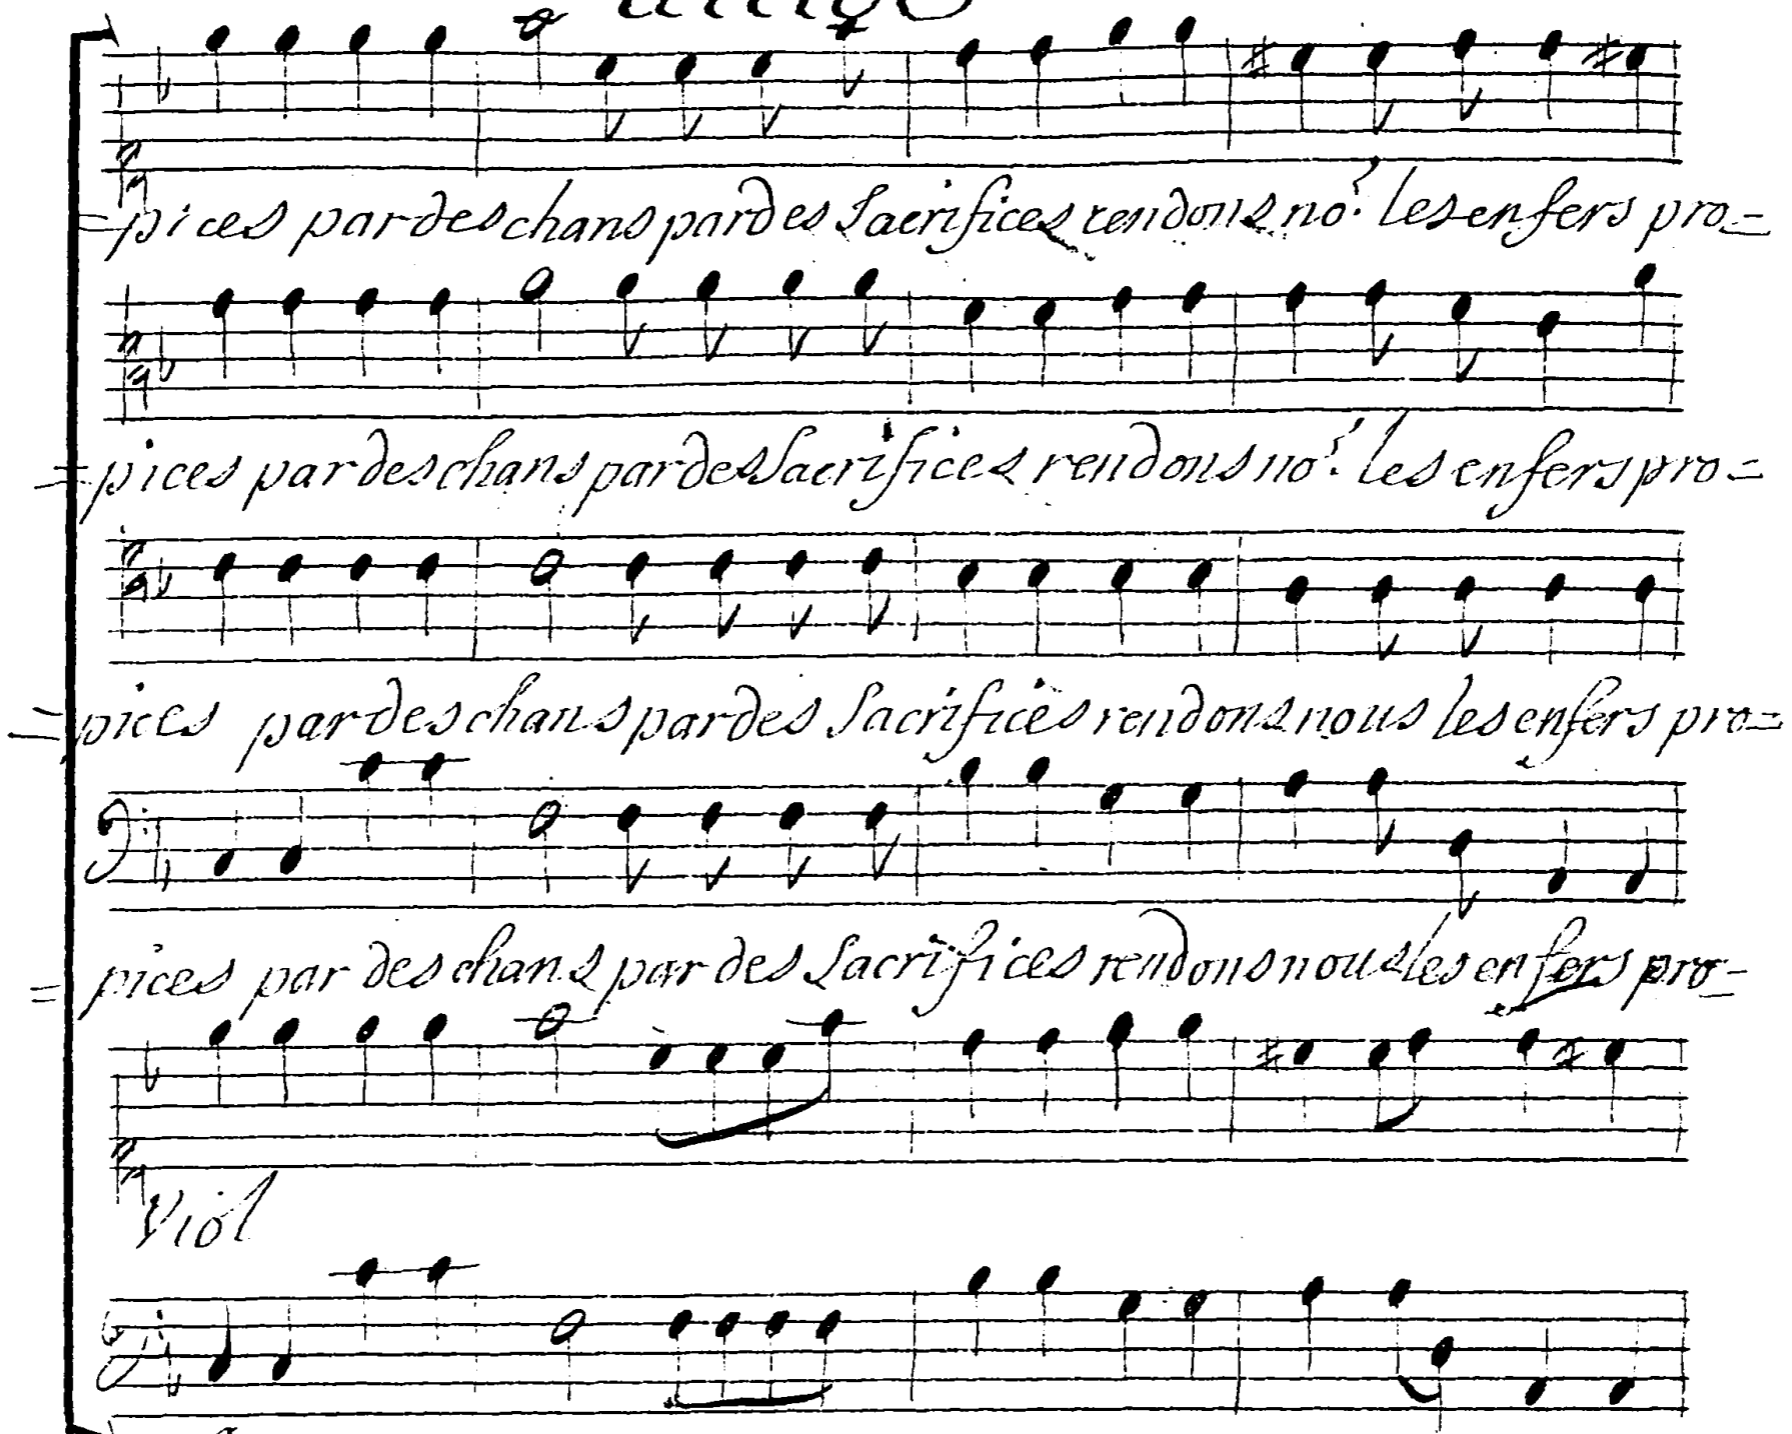 =pices par des chans par des Sacrifices rendons no.s les enfers pro=
=pices par des chans par des Sacrifices rendons no.s les enfers pro=
=pices par des chans par des Sacrifices rendons nous les enfers pro=
=pices par des chans par des Sacrifices rendons nous les enfers pro=
Viol